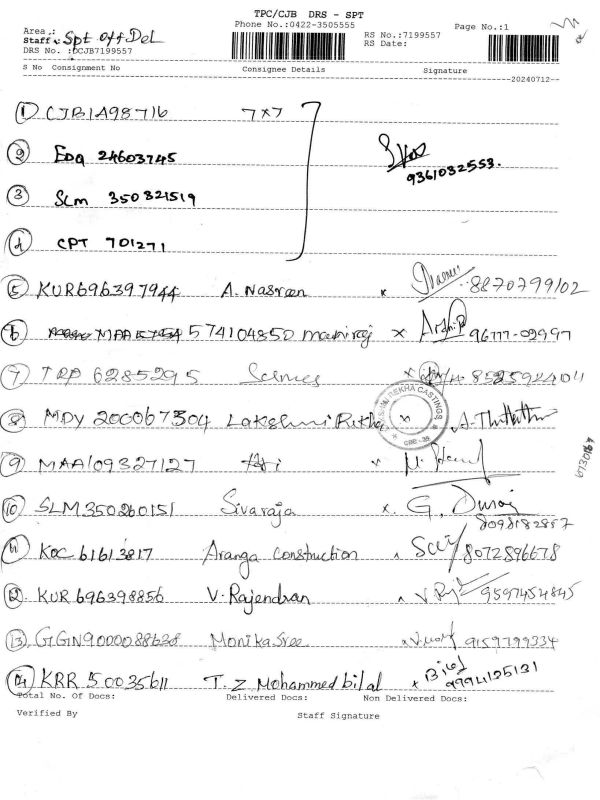 TPC/CJB DRS - SPT
Phone No.:0422-3505555
Page No.:1
Area .:
Staff : Spt off Del
RS No.:7199557
DRS No. :DCJB7199557
RS Date:
S No Consignment No Consignee Details Signature
20240712
1 CJB1A98716 7x7
2 EDQ 24603745
9361032553.
3 SLM 350321519
4 CPT 701271
5 KUR696397944 A. Nasreen x 8870799102
6 MAA 574104850 x 96777-02997
7 TRP 6285295 x 8525924104
8 MDY 200067304 Lakshmi Rekha
REKHA CASTINGS
9 MAA109327127 x
10 SLM350260151 Sivaraja x. G. Duraj
8098182857
11 KOC 61613817 Aranga Construction 8072896678
12 KUR 696398856 V. Rajendran 9597454845
13 GGN9000088638 Monika Sree 9159799334
14 KRR 50035611 T. Z Mohammed bilal + Bilal
9994125131
Total No. Of Docs: Delivered Docs: Non Delivered Docs:
Verified By Staff Signature